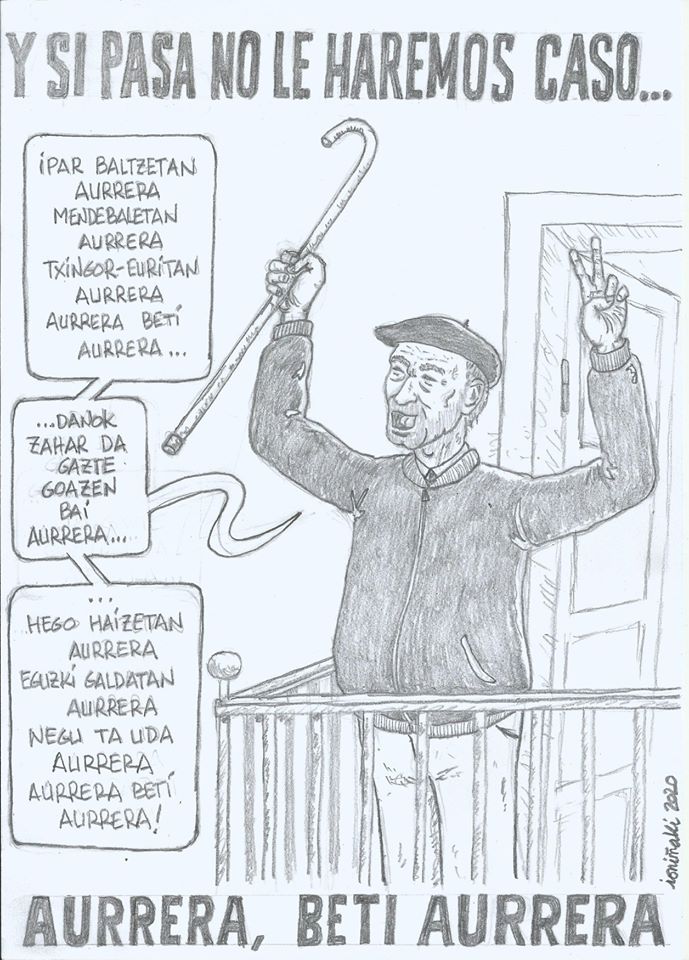 Y SI PASA NO LE HAREMOS CASO...
¡PAR BALTZETAN
AURRERA
MENDEBALETAN
AURRERA
TXINGOR-EURITAN
AURRERA
AURRERA BETI
AURRERA...
...DANOK
ZAHAR DA
GAZTE
GOAZEN
BAI
AURRERA...
...
HEGO HAIZETAN
AURRERA
EGUZKI GALDATAN
AURRERA
NEGU TA UDA
AURRERA
AURRERA BETI
AURRERA!
ioriñaki 2020
AURRERA, BETI AURRERA